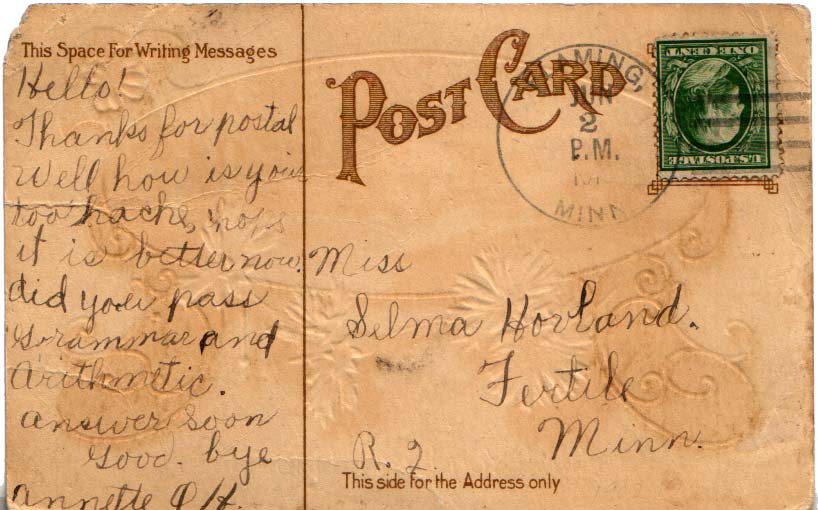 This Space For Writing Messages
Hello!
Thanks for postal
Well how is your
toothache, hope
it is better now.
did you pass
Grammar and
Arithmetic.
Answer soon
Good. bye
Annette
POST CARD
MING,
JUN
2
P.M.
MINN
ONE CENT
U.S. POSTAGE
Miss
Selma Hovland.
Fertile
Minn.
R. 2
This side for the Address only